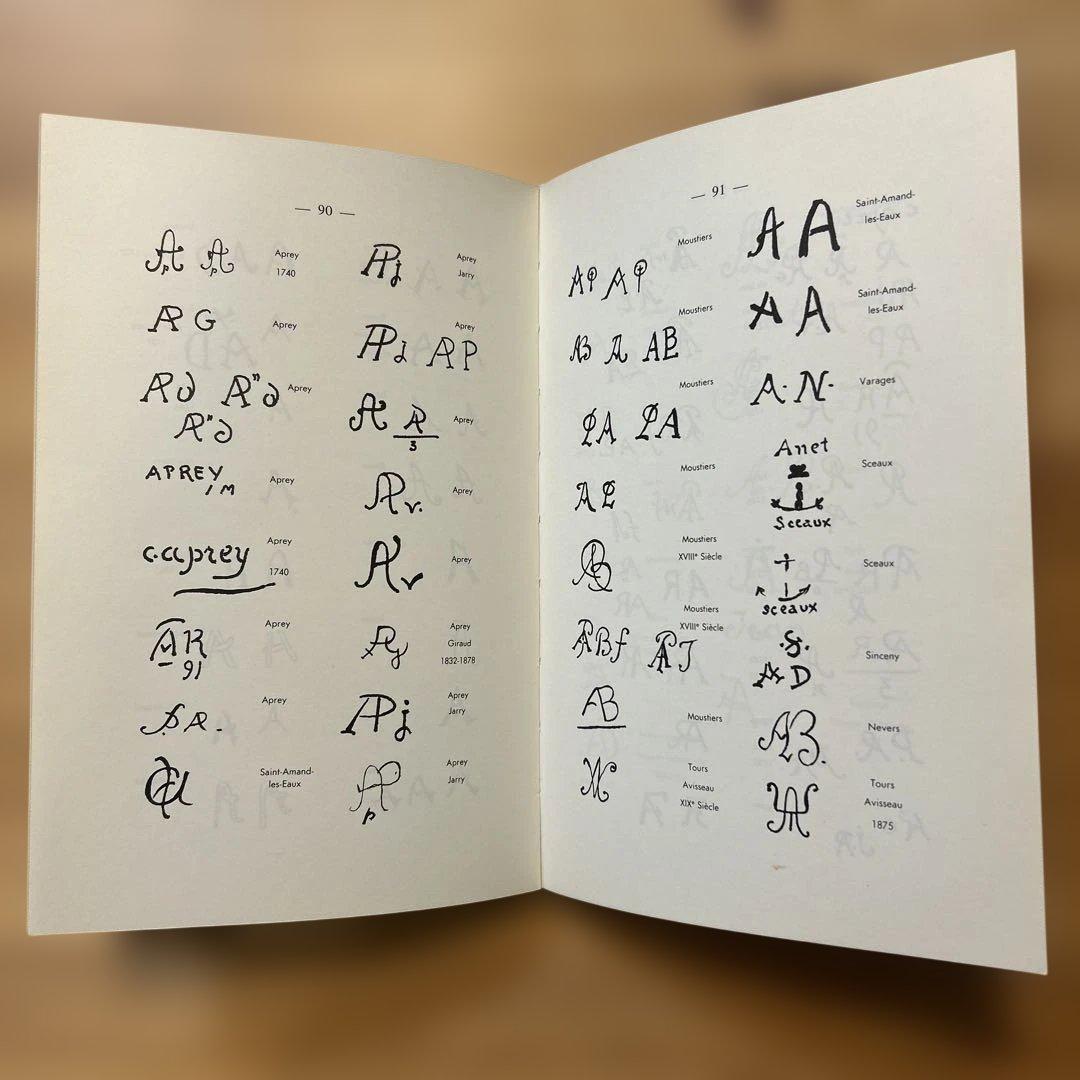 — 90 —
Aprey
1740
AR G
Aprey
Aprey
APREY
Aprey
caprey
Aprey
1740
AR
91
Aprey
Aprey
Saint-Amand-
les-Eaux
APj
Aprey
Jarry
APj ARP
Aprey
3
Aprey
ARv.
Aprey
Av
Aprey
Aprey
Giraud
1832-1878
APj
Aprey
Jarry
AP
p
Aprey
Jarry
— 91 —
Moustiers
AP AP
Moustiers
AB A AB
Moustiers
PA PA
Moustiers
Moustiers
XVIIIᵉ Siècle
Moustiers
XVIIIᵉ Siècle
AB
Moustiers
Tours
Avisseau
XIXᵉ Siècle
A A
Saint-Amand-
les-Eaux
A A
Saint-Amand-
les-Eaux
A· N·
Varages
Anet
Sceaux
Sceaux
Sceaux
sceaux
·S·
AD
Sinceny
AB.
Nevers
Tours
Avisseau
1875